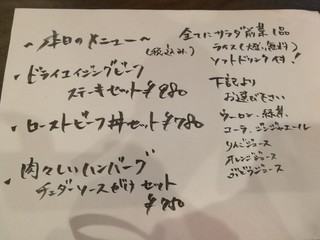 〜本日のメニュー〜
(税込み)
・ドライエイジングビーフ
ステーキセット ¥980
・ローストビーフ丼セット ¥780
・肉々しいハンバーグ
チェダーソースがけ セット
¥780
全てにサラダ、前菜1品
ライス(大盛無料)
ソフトドリンク付!
下記より
お選び下さい
ウーロン、緑茶
コーラ、ジンジャエール
りんごジュース
オレンジジュース
ぶどうジュース